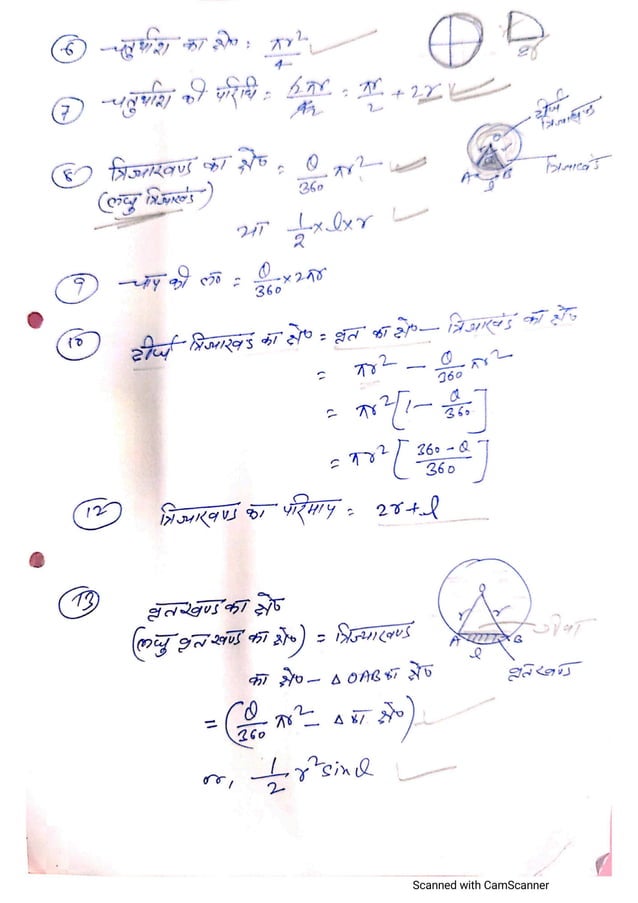 ⑥ चतुर्थांश का क्षे॰ : πr²/4
2r
⑦ चतुर्थांश की परिधि = = πr/2 + 2r
दीर्घ त्रिज्याखण्ड
⑧ त्रिज्याखण्ड का क्षे॰ = θ/360 πr²
(लघु त्रिज्याखंड)
O
A l B
त्रिज्याखंड
या 1/2 × l × r
⑨ चाप की ल॰ = θ/360 × 2πr
⑩ दीर्घ त्रिज्याखण्ड का क्षे॰ = वृत का क्षे॰ – त्रिज्याखंड का क्षे॰
= πr² – θ/360 πr²
= πr² [1 – θ/360]
= πr² [360 – θ/360]
⑫ त्रिज्याखण्ड का परिमाप = 2r + l
⑬ वृतखण्ड का क्षे॰
(लघु वृतखण्ड का क्षे॰) = त्रिज्याखण्ड
का क्षे॰ – Δ OAB का क्षे॰
O
r r
A B
l
जीवा
वृतखण्ड
= (θ/360 πr² – Δ का क्षे॰)
or, 1/2 r² sin θ
Scanned with CamScanner